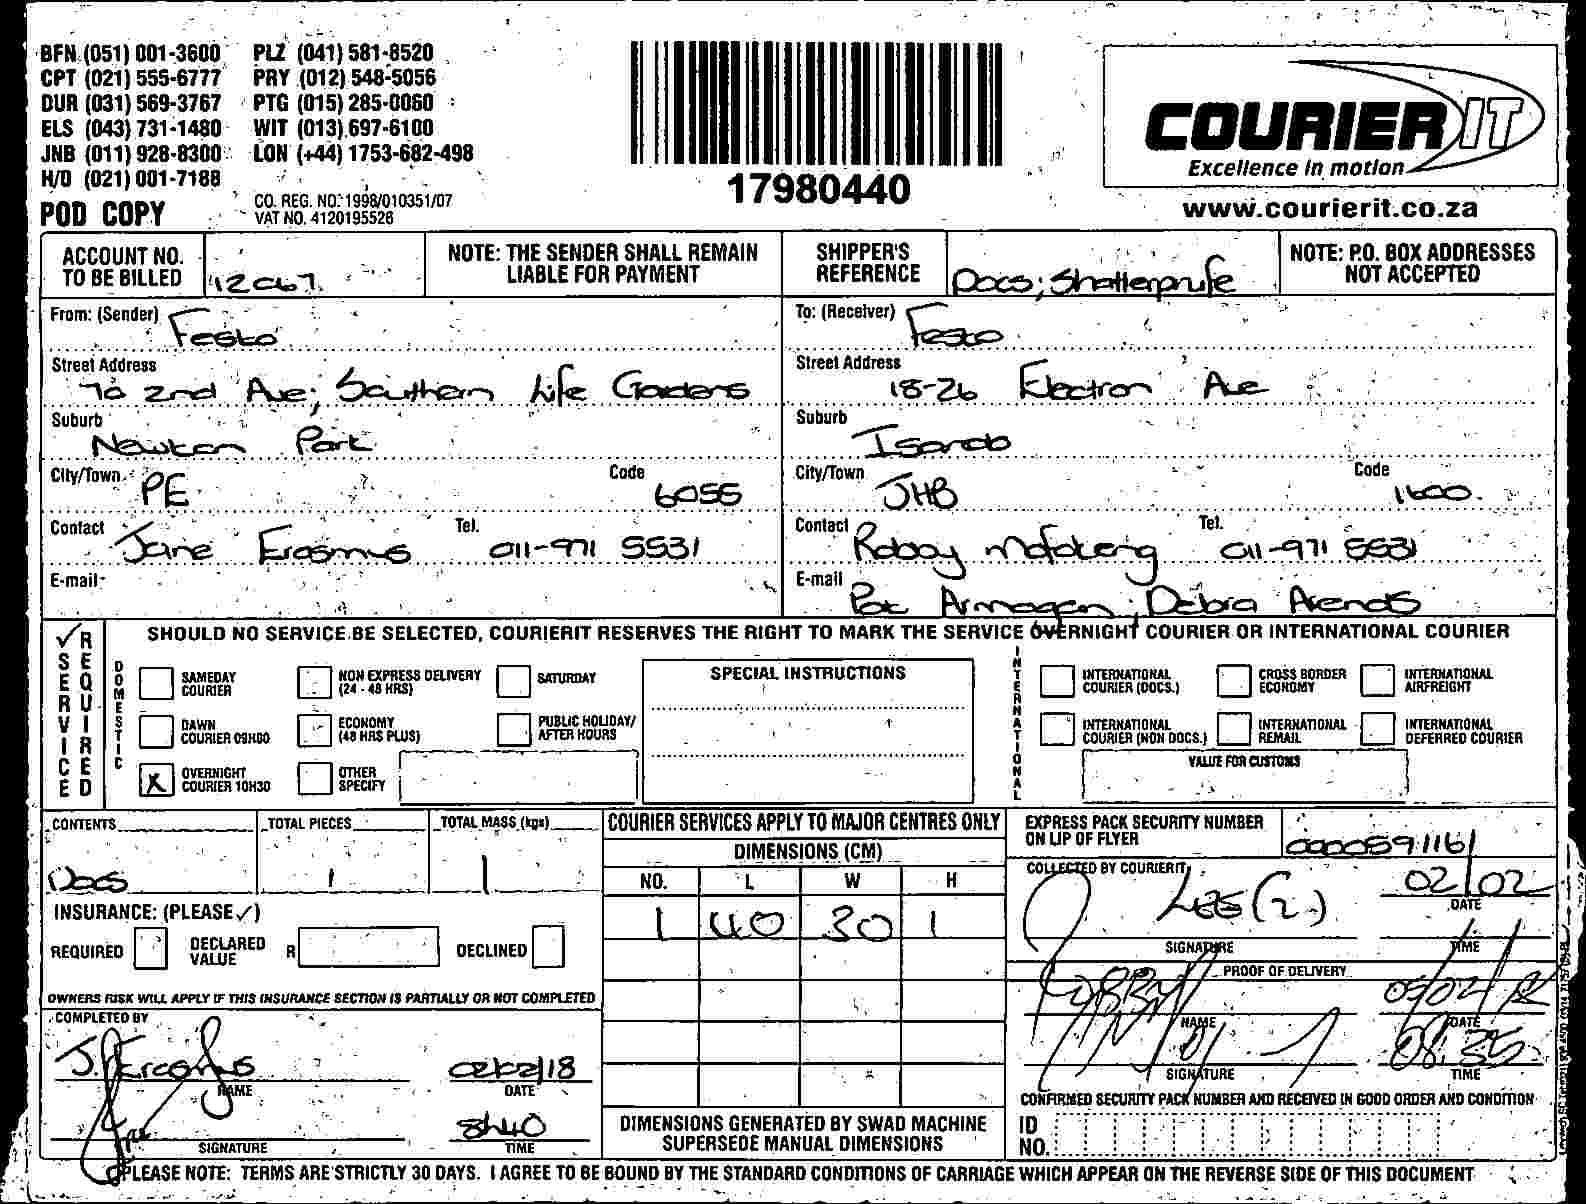 BFN (051) 001-3600 PLZ (041) 581-8520
CPT (021) 555-6777 PRY (012) 548-5056
DUR (031) 569-3767 PTG (015) 285-0060
ELS (043) 731-1480 WIT (013) 697-6100
JNB (011) 928-8300 LON (+44) 1753-682-498
H/O (021) 001-7188
POD COPY
CO. REG. NO. 1998/010351/07
VAT NO. 4120195526
17980440
COURIER IT
Excellence in motion
www.courierit.co.za
ACCOUNT NO. TO BE BILLED
NOTE: THE SENDER SHALL REMAIN LIABLE FOR PAYMENT
SHIPPER'S REFERENCE Docs; Shatterprufe
NOTE: P.O. BOX ADDRESSES NOT ACCEPTED
From: (Sender) Festo
Street Address 70 2nd Ave; Southern Life Gardens
Suburb Newton Park
City/Town PE Code 6055
Contact Jane Erasmus Tel. 011-971 5531
E-mail
To: (Receiver) Festo
Street Address 18-26 Electron Ave
Suburb Isando
City/Town JHB Code 1600
Contact Robby Mofokeng Tel. 011-971 5531
E-mail Pat Armogan; Debra Arends
SERVICE REQUIRED
SHOULD NO SERVICE BE SELECTED, COURIERIT RESERVES THE RIGHT TO MARK THE SERVICE OVERNIGHT COURIER OR INTERNATIONAL COURIER
DOMESTIC
SAMEDAY COURIER
NON EXPRESS DELIVERY (24 - 48 HRS)
SATURDAY
DAWN COURIER 09H00
ECONOMY (48 HRS PLUS)
PUBLIC HOLIDAY/ AFTER HOURS
X OVERNIGHT COURIER 10H30
OTHER SPECIFY
SPECIAL INSTRUCTIONS
INTERNATIONAL
INTERNATIONAL COURIER (DOCS.)
CROSS BORDER ECONOMY
INTERNATIONAL AIRFREIGHT
INTERNATIONAL COURIER (NON DOCS.)
INTERNATIONAL REMAIL
INTERNATIONAL DEFERRED COURIER
VALUE FOR CUSTOMS
CONTENTS Docs
TOTAL PIECES 1
TOTAL MASS (kgs) 1
INSURANCE: (PLEASE ✓)
REQUIRED
DECLARED VALUE R
DECLINED
OWNERS RISK WILL APPLY IF THIS INSURANCE SECTION IS PARTIALLY OR NOT COMPLETED
COMPLETED BY
J. Erasmus 02/02/18
NAME DATE
8h40
SIGNATURE TIME
COURIER SERVICES APPLY TO MAJOR CENTRES ONLY
DIMENSIONS (CM)
NO. L W H
1 40 30 1
DIMENSIONS GENERATED BY SWAD MACHINE SUPERSEDE MANUAL DIMENSIONS
EXPRESS PACK SECURITY NUMBER ON LIP OF FLYER
COLLECTED BY COURIERIT
02/02
SIGNATURE DATE
TIME
PROOF OF DELIVERY
NAME DATE
08:35
SIGNATURE TIME
CONFIRMED SECURITY PACK NUMBER AND RECEIVED IN GOOD ORDER AND CONDITION
ID NO.
PLEASE NOTE: TERMS ARE STRICTLY 30 DAYS. I AGREE TO BE BOUND BY THE STANDARD CONDITIONS OF CARRIAGE WHICH APPEAR ON THE REVERSE SIDE OF THIS DOCUMENT